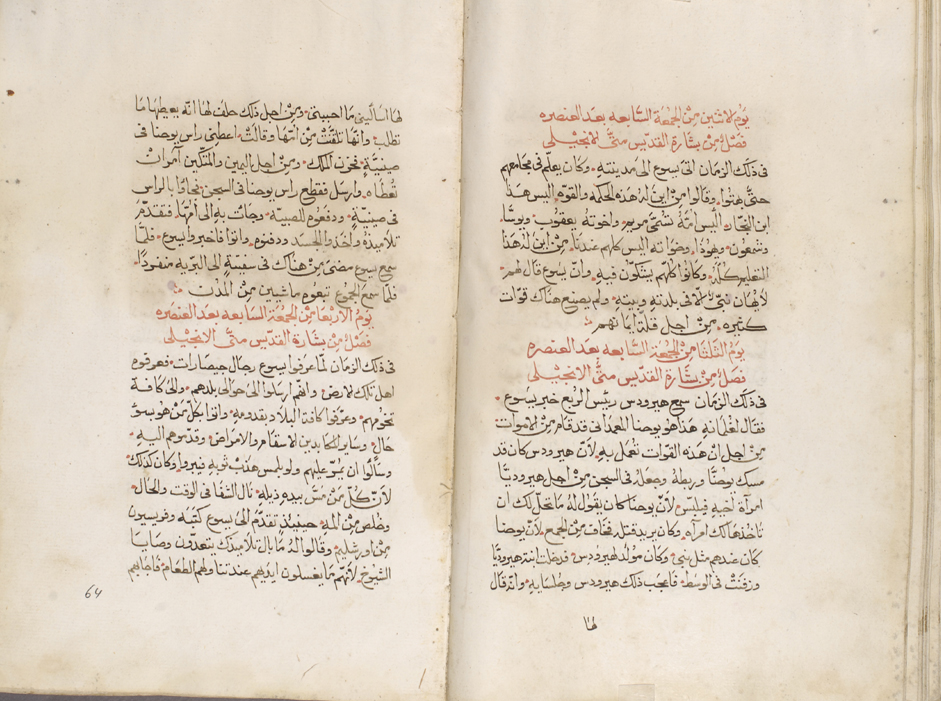 يَوم لاثنين مِنَ الجمعَة السَّابعه بعَد العنصره
فصَلٌ مِنْ بشارة القدّيس متّى لانجيلى
فى ذلك الزمَان اتى يسوع الى مدينته وكان يعلّم فى مجامعهم
حتىّ بهتوا وقالوا من اين لهُ هذه الحكمه والقوّه اليس هذا
ابن النجّار اليس امّهُ تسَمّى مريم واخوته يعقوب ويوسَا
وشمعون ويهوذا واخواته اليس كلهم عندنا من اين له هذا
التعليم كلهُ وكانوا كلهم يشكّون فيه وانّ يسوع قال لهم
لايُهَان نبىّ الّا فى بلدته وبيته ولم يصنع هناك قوّات
كثيره من اجل قلة ايمانهم
يَومُ الثلثا مِنَ الجمعَة السَّابعه بعَد العنصره
فصَلٌ مِنْ بشَارة القدّيس متّى الانجيلى
فى ذلك الزمَان سمع هيرودس رئيس الربع خبر يسوع
فقال لغلمَانه هذا هو يوحنا المعمدانى قد قام من الاموات
من اجل انّ هذه القوات تعمل به لانّ هيرودس كان قد
مسك يوحنّا وربطهُ وجعلهُ فى السجن من اجل هيروديّا
امرأة اخيه فيلبّس لانّ يوحنا كان يقول لهُ مَا تحلّ لك ان
تاخذهَا لك امرأه وكان يريد قتله فخاف من الجمع لانّ يوحنا
كان عندهم مثل نبى وكان مولد لهيرودس فدخلت ابنة هيروديّا
ورقصَتْ فى الوسط فاعجَب ذلك هيرودس وجلسَايه وانه قال
لها
لها اسَاليني مَا احببتى ومن اجل ذلك حلف لها انّه يعطيها مَا
تطلب وانها تلقنت من امّها وقالت اعطنى راس يوحنا فى
صينيّة فحزن الملك ومن اجل اليمين والمتكين امر ان
تعُطَاه وارسَل فقطع راس يوحنا فى السجن فجاؤا بالراس
فى صينيّة ودفعوه للصبية وجات به الى امّها فتقدّم
تلاميذهُ واخذوا الجسَد ودفنوه واتوا فاخبروا يسوع فلمّا
سمع يسوع مضى من هناك فى سفينة الى البريّه منفردًا
فلمّا سمع الجموع تبعوه ماشيين من المدن
يَومُ الاربعَا مِنَ الجمعَة السَابعه بعَد العنصره
فصَلٌ مِن بشارة القدّيس متّى الانجيلى
فى ذلك الزمان لمّا عرفوا يسوع رجال جيصارات فعرفوه
اهل تلك لارض وانهم ارسلوا الى حوالى بلدهم والى كافة
تخومهم وعرّفوا كافة البلاد بقدومه واتوا بكلّ من هو بسوّ
حالٍ وسايو المكابدين الاسقام والامراض وقدّموهم اليه
وسَألوا ان يمنّ عليهم ولو بلمس هدب ثوبه فيبروا وكان كذلك
لانّ كلّ مَنْ مَسّ بيده ذيله نال الشفا فى الوقت والحال
وخلص من المه حينيئذ تقدّم الى يسوع كتبه وفريسيون
من اورشليم وقالوا لهُ مَا بال تلاميذك يتعدّون وصايا
الشيوخ لانّهم مَا يغسلون ايديهم عند تناولهم الطعام فاجابهم
64